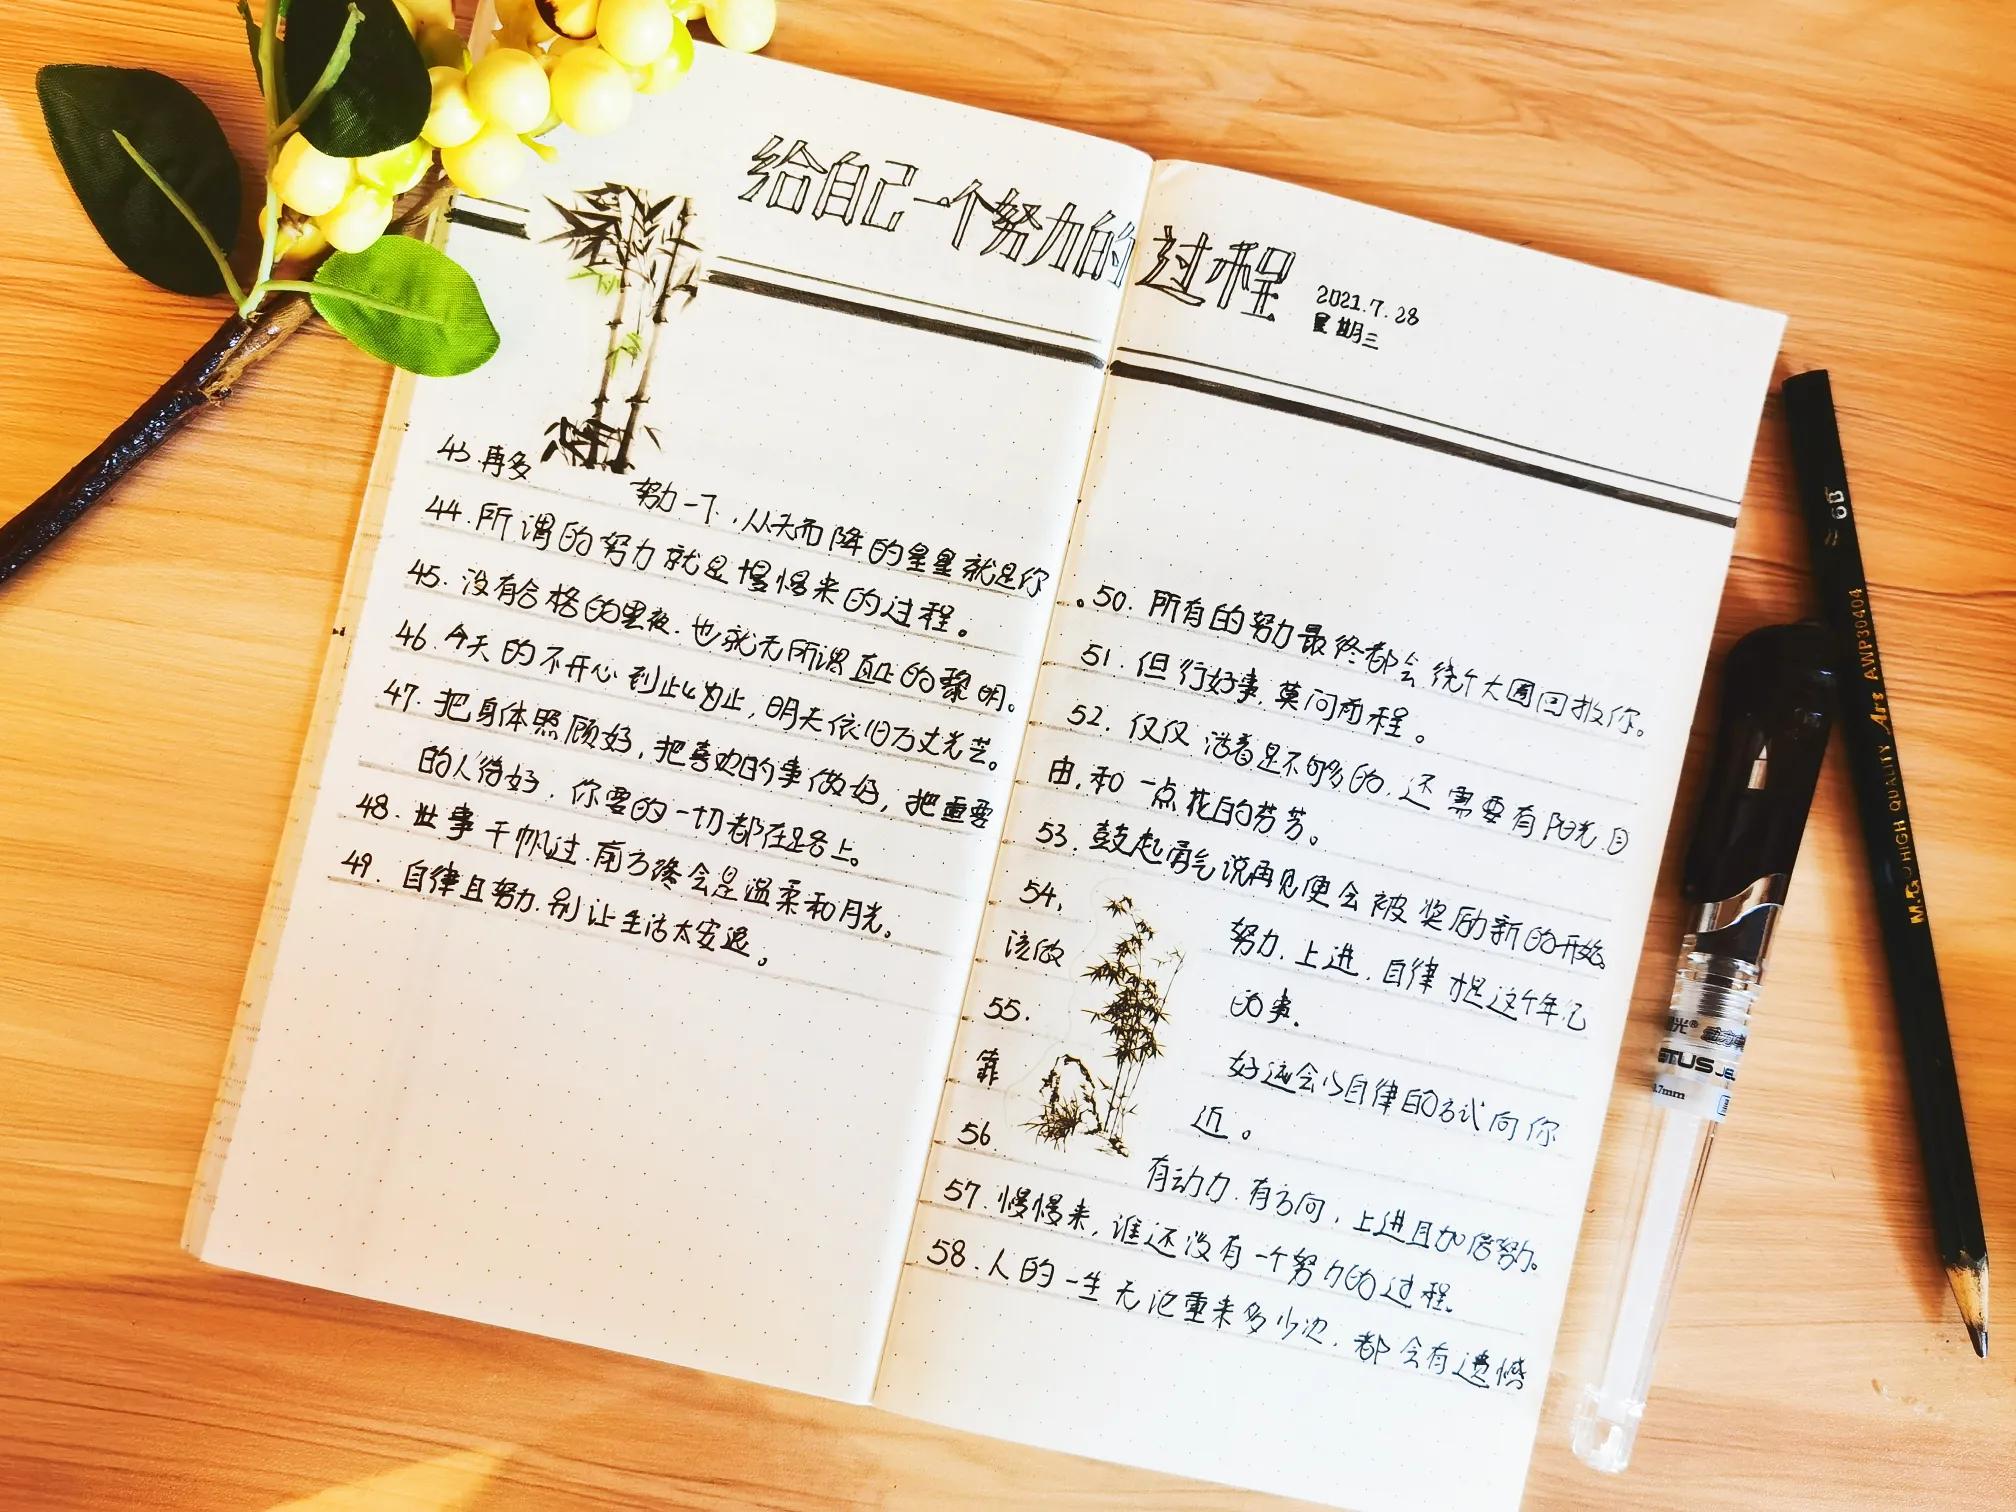 给自己一个努力的过程
2021.7.28
星期三
43.再多努力一下,从天而降的星星就是你。
44.所谓的努力就是慢慢来的过程。
45.没有合格的黑夜.也就无所谓真正的黎明。
46.今天的不开心到此为止,明天依旧万丈光芒。
47.把身体照顾好,把喜欢的事做好,把重要
的人待好.你要的一切都在路上。
48.世事千帆过.前方终会是温柔和月光。
49.自律且努力.别让生活太安逸。
50.所有的努力最终都会绕个大圈回报你。
51.但行好事,莫问前程。
52.仅仅活着是不够的.还需要有阳光.自
由.和一点花的芬芳。
53.鼓起勇气说再见便会被奖励新的开始。
54.努力.上进.自律才是这个年纪
该做的事.
55.好运会以自律的方式向你
靠近。
56.有动力.有方向,上进且加倍努力。
57.慢慢来,谁还没有一个努力的过程.
58.人的一生无论重来多少次.都会有遗憾
6B
M&G HIGH QUALITY Art AWP30404
JEL
.7mm